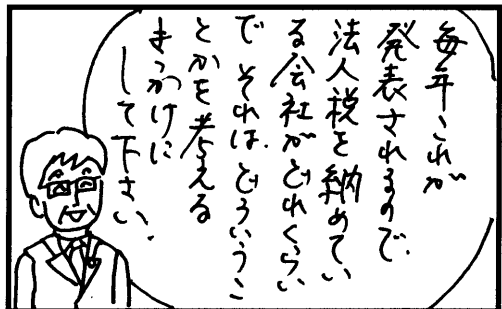 毎年これが
発表されるので、
法人税を納めてい
る会社がどれくらい
で それは、どういうこ
とかを考える
きっかけに
して下さい、